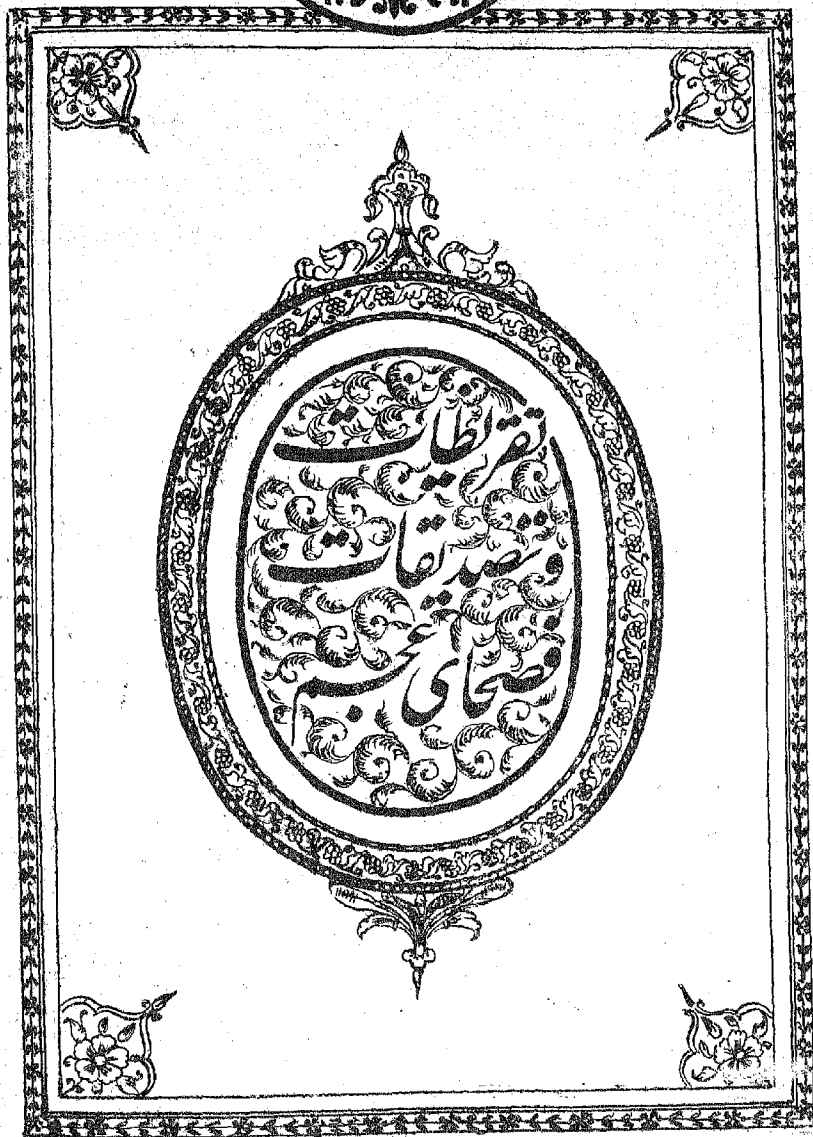 تقریظات
وتصدیقات
فصحای عجم